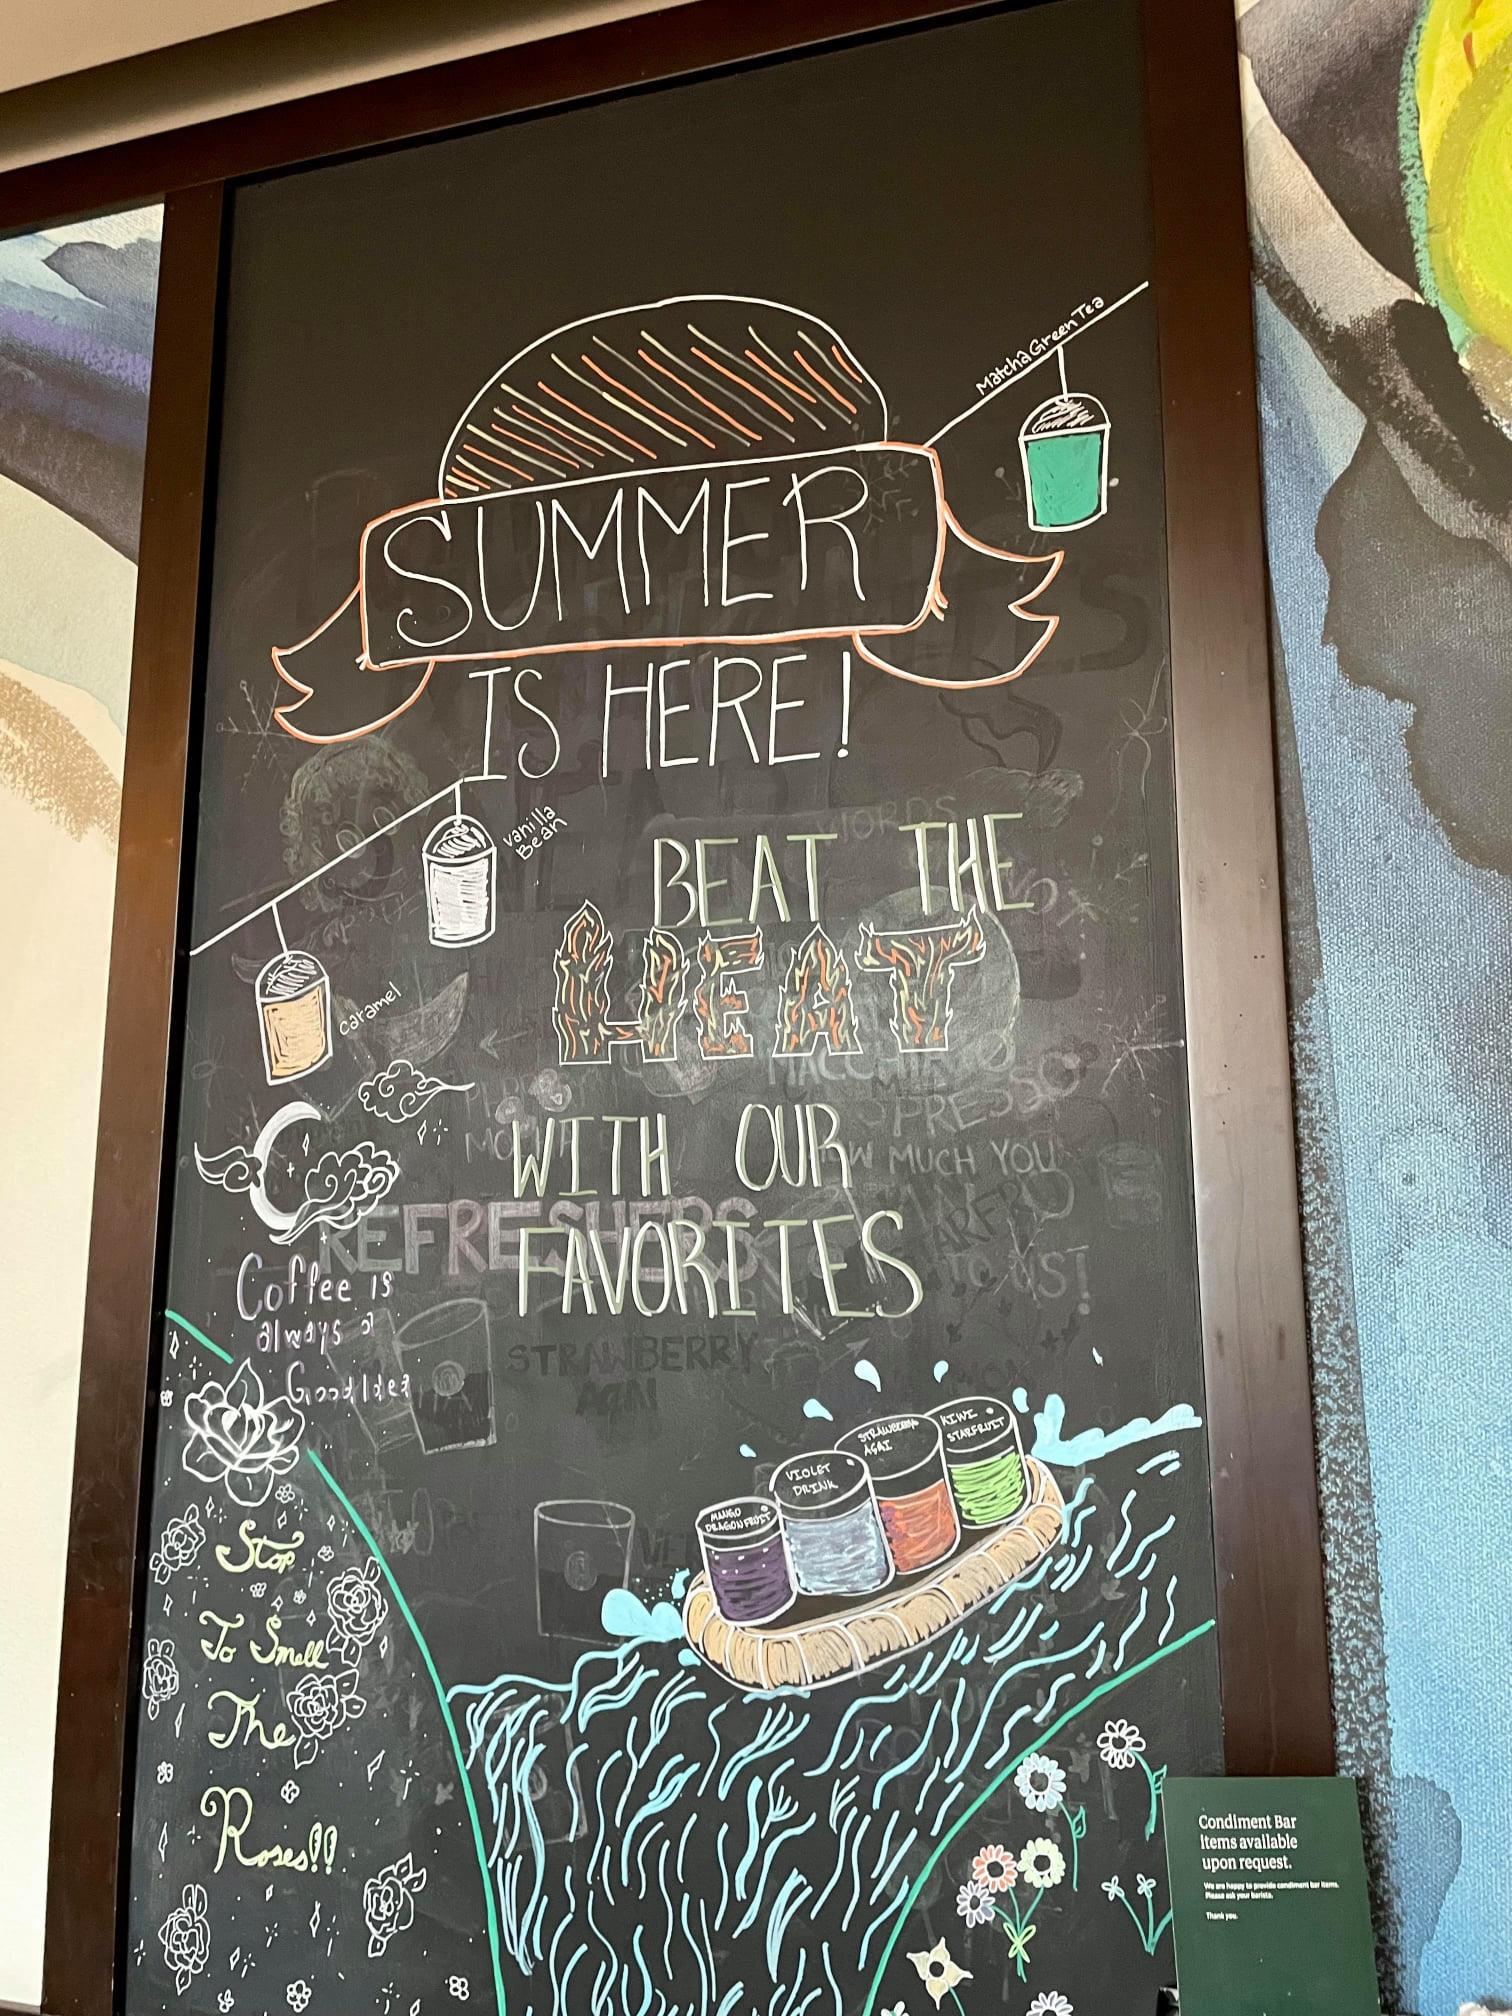 Matcha Green Tea
SUMMER
IS HERE!
vanilla
Bean
caramel
BEAT THE
HEAT
WITH OUR
FAVORITES
REFRESHERS
MACCHIATO
MUCH YOU
MOCHA
STRAWBERRY
Coffee is
always a
Good Idea
Stop
To Smell
The
Roses!!
MANGO
DRAGONFRUIT
VIOLET
DRINK
STRAWBERRY
AÇAI
KIWI
STARFRUIT
Condiment Bar
items available
upon request.
We are happy to provide condiment bar items.
Please ask your barista.
Thank you.